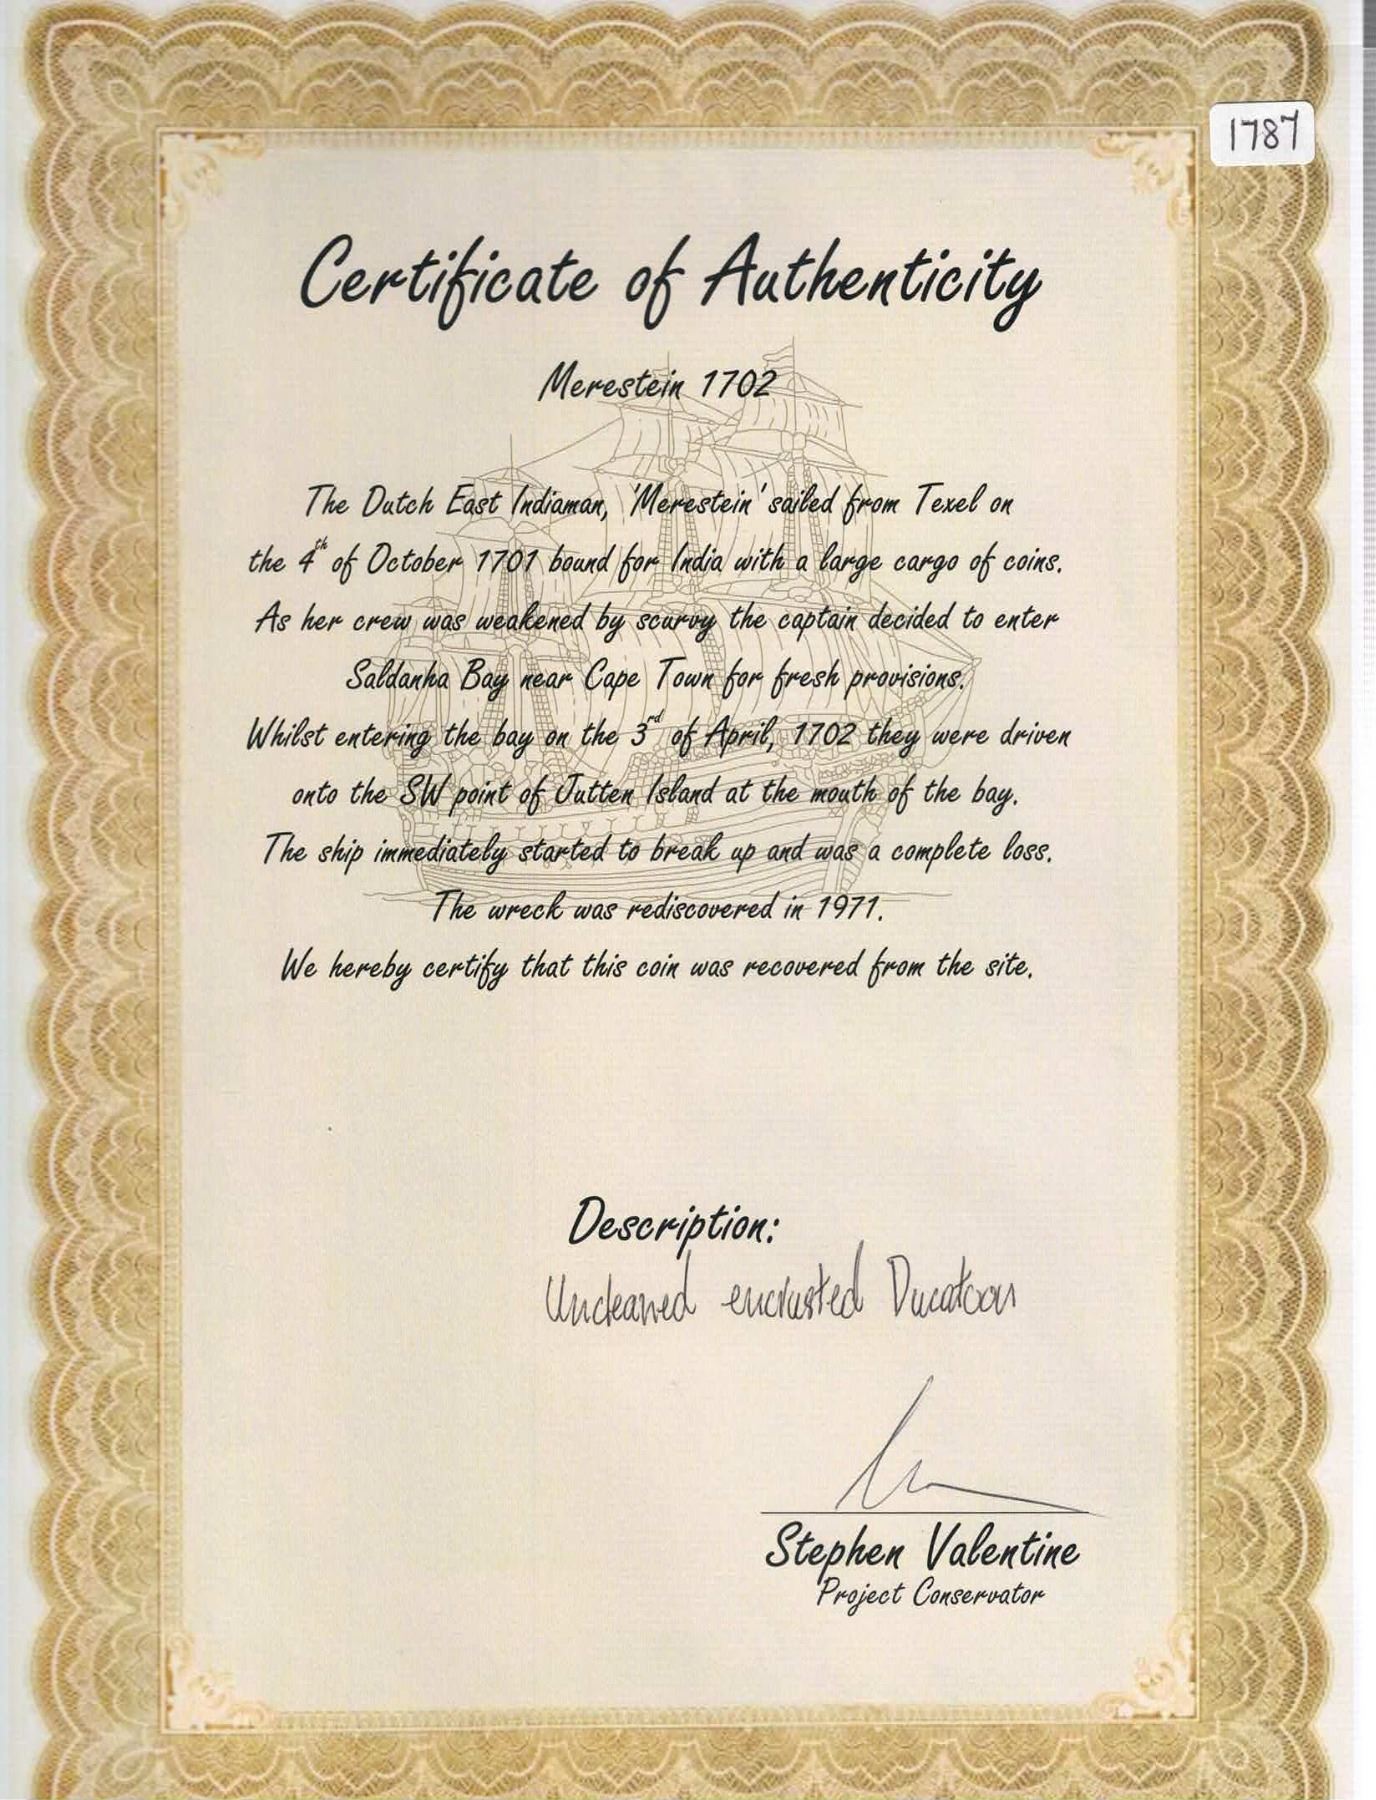 1787
Certificate of Authenticity
Merestein 1702
The Dutch East Indiaman, 'Merestein' sailed from Texel on
the 4th of October 1701 bound for India with a large cargo of coins.
As her crew was weakened by scurvy the captain decided to enter
Saldanha Bay near Cape Town for fresh provisions.
Whilst entering the bay on the 3rd of April, 1702 they were driven
onto the SW point of Jutten Island at the mouth of the bay.
The ship immediately started to break up and was a complete loss.
The wreck was rediscovered in 1971.
We hereby certify that this coin was recovered from the site.
Description:
Uncleaned encrusted Ducatoon
Stephen Valentine
Project Conservator